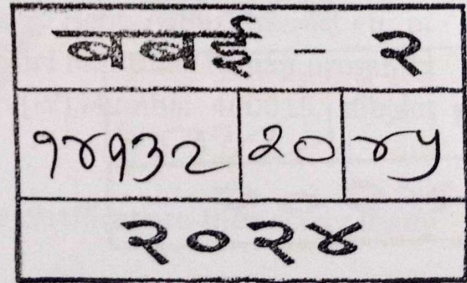 बबई - २
१४१३२ २० ४५
२०२४